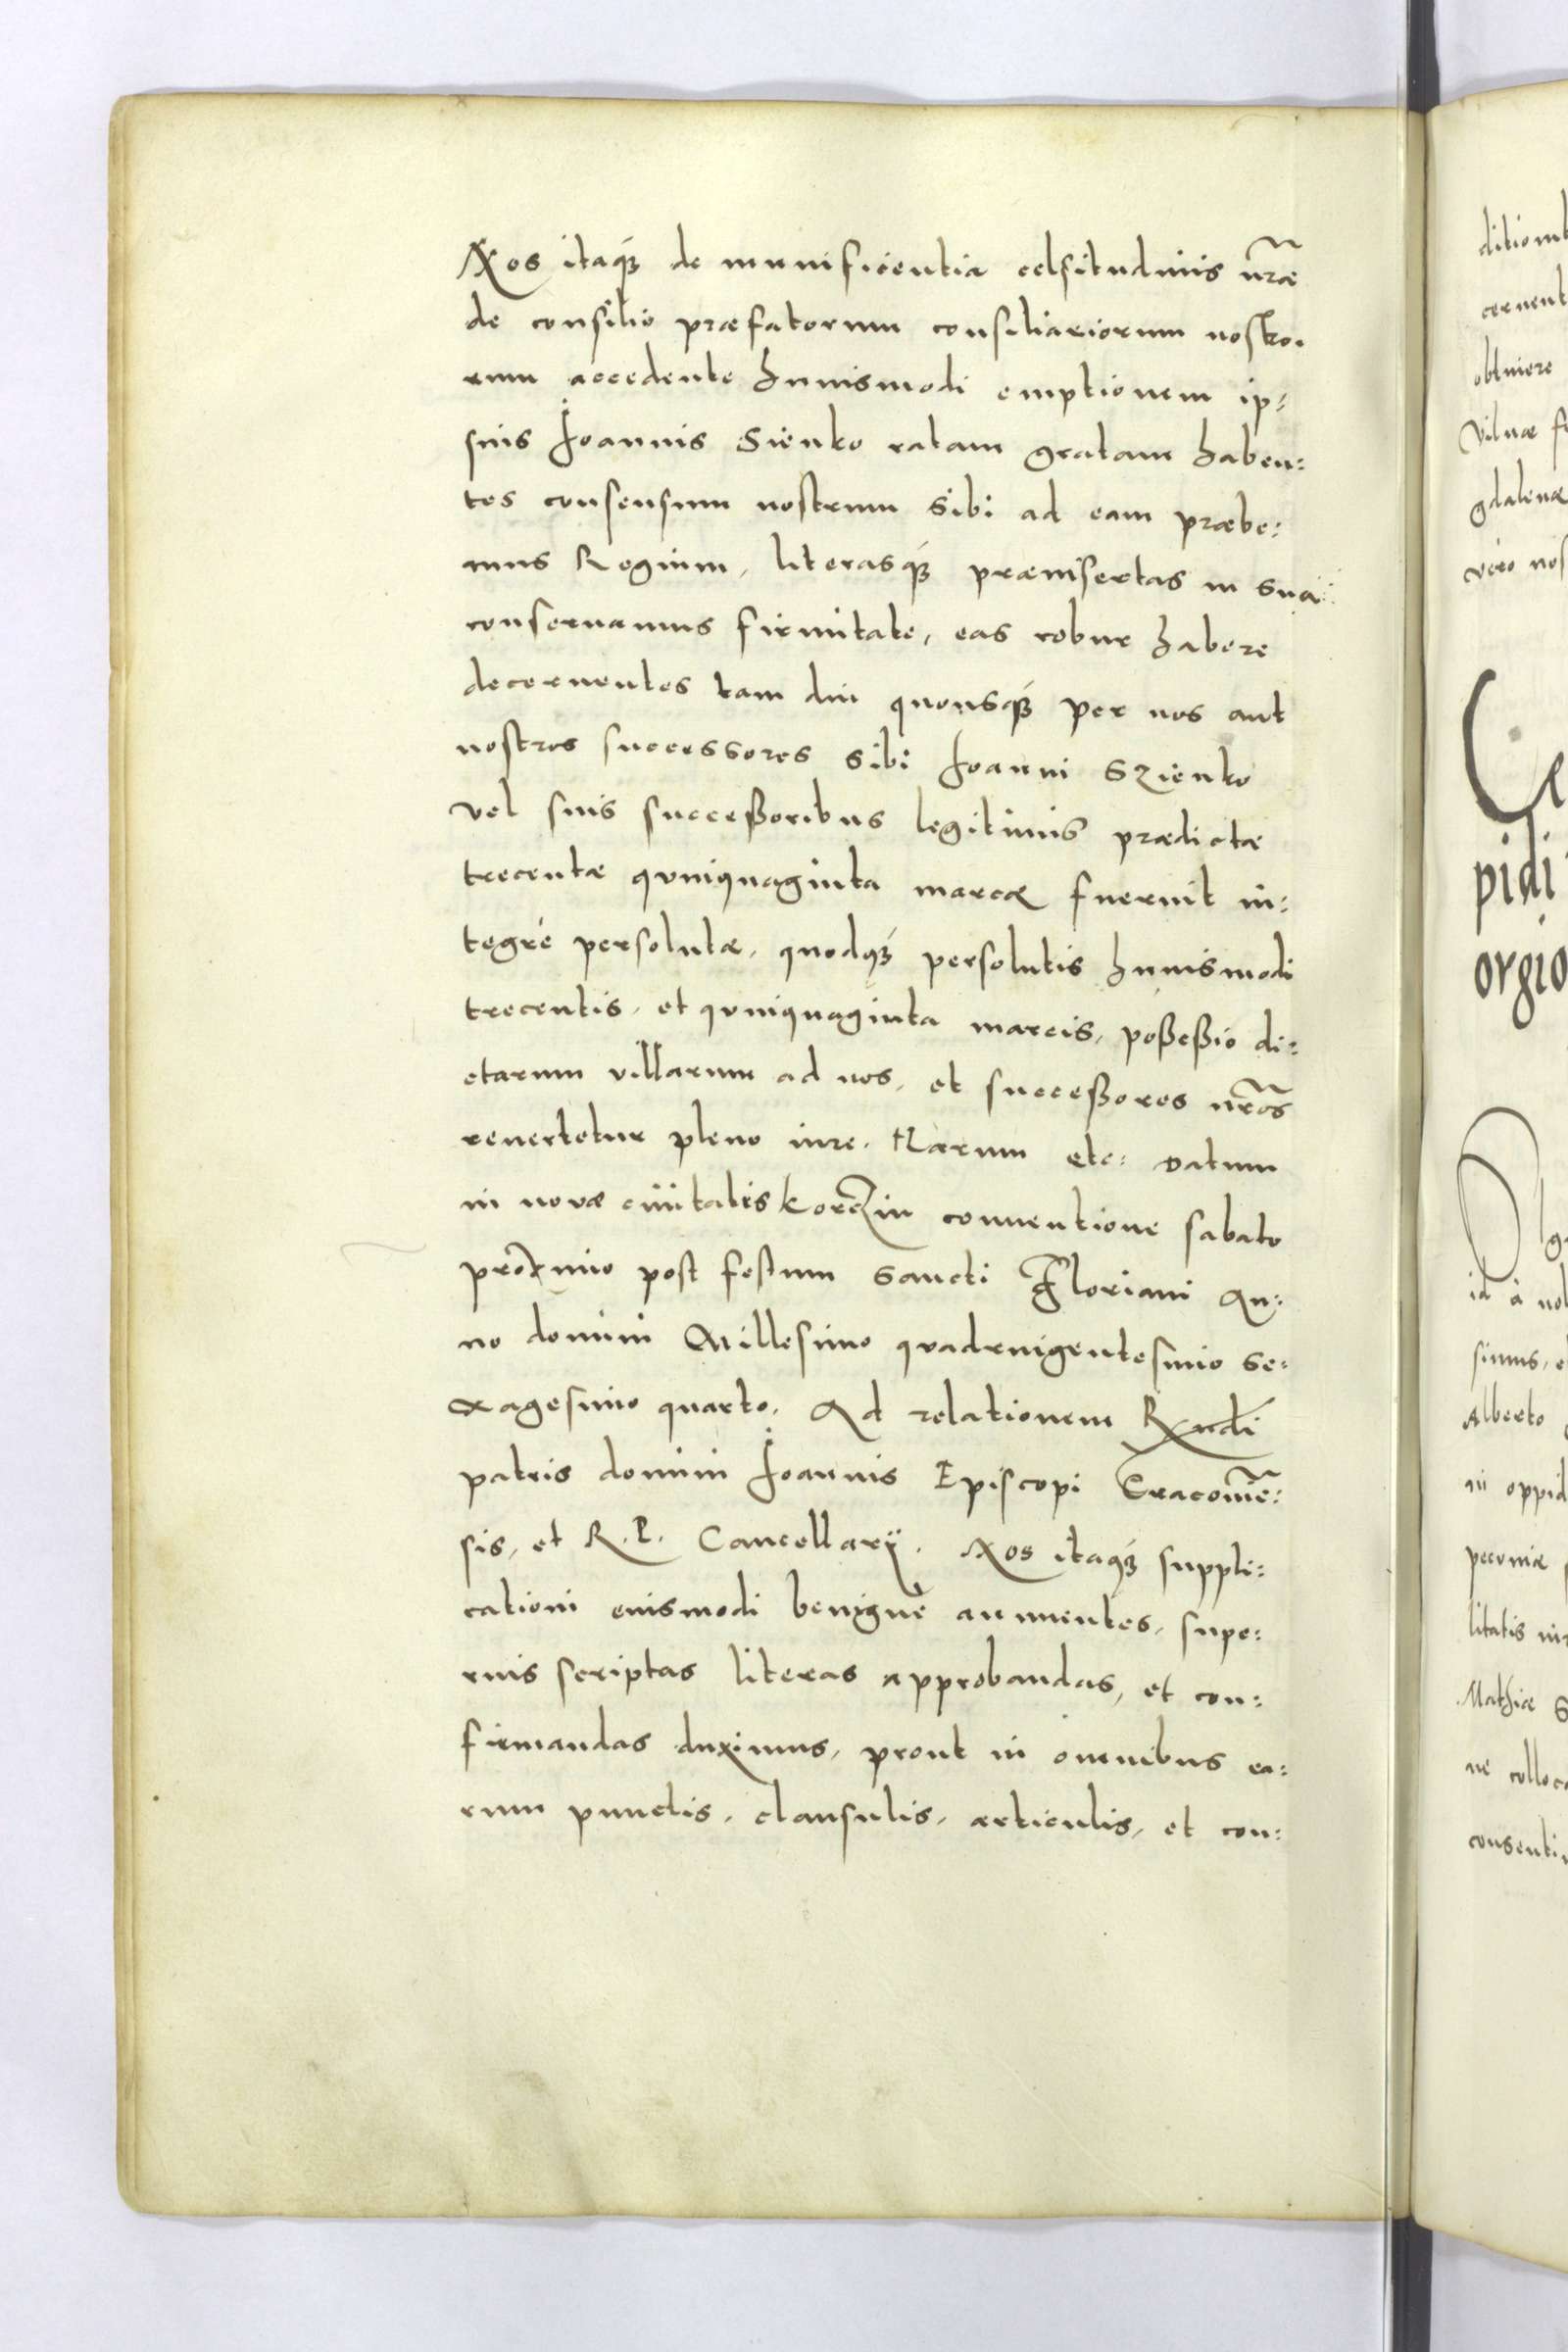 Nos itaq́ȝ de munificientia celsitudinis nr̃æ
de consilio præfatorum consiliariorum nostro-
rum accedente huiusmodi emptionem ip:
suis Ioannis Sienko ratam gratam haben:
tes consensum nostrum sibi ad eam præbe:
mus Regium, literasq́ȝ præinsertas in sua
conseruamus firmitate, eas robur habere
decernentes tam diu quousq́ȝ per nos aut
nostros successores sibi Ioanni Szienko
vel suis succeßoribus legitimis prædictæ
trecentæ quinquaginta marcæ fuerint in:
tegrè persolutæ, quodq́ȝ persolutis huiusmodi
trecentis, et quinquaginta marcis, poßeßio di:
ctarum villarum ad nos, et succeßores nr̃os
reuertetur pleno iure. Harum etc: Datum
in nouæ ciuitatis Korczin conuentione sabato
proximo post festum Sancti Floriani An:
no domini Millesimo quadringentesimo se:
xagesimo quarto. Ad relationem Rndi
patris domini Ioannis Episcopi Cracouie͂:
sis, et R. P. Cancellarij. Nos itaq́ȝ suppli:
cationi eiusmodi benignè annuentes, supe:
rius scriptas literas approbandas, et con:
firmandas duximus, prout in omnibus ea:
rum punctis, clausulis, articulis, et con:
ditionib
cernent
obtinere
Vilnæ
gdalenæ
vero nos
pidi
orgio
id à nob
simus,
Alberto
in oppid
pecuniæ
litatis
Mathiæ S
ne colloca
consenti